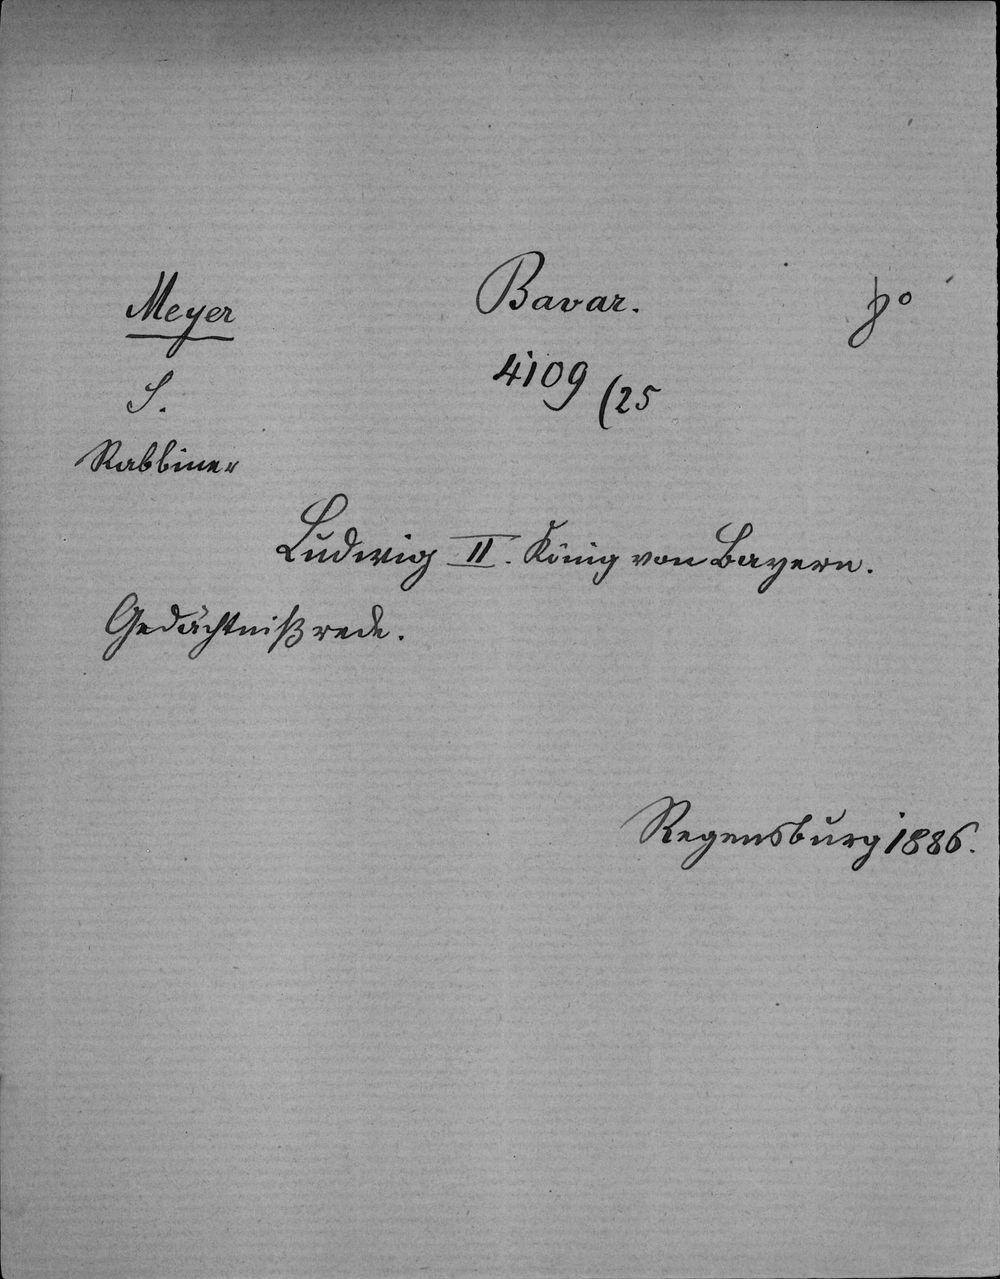 Meyer
Bavar.
8°
4109 (25
S.
Rabbiner
Ludwig II. König von Bayern.
Gedächtnißrede.
Regensburg 1886.